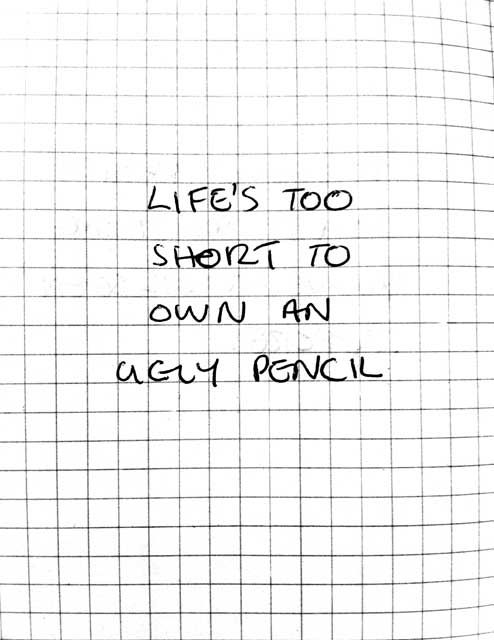 LIFE'S TOO
SHORT TO
OWN AN
UGLY PENCIL